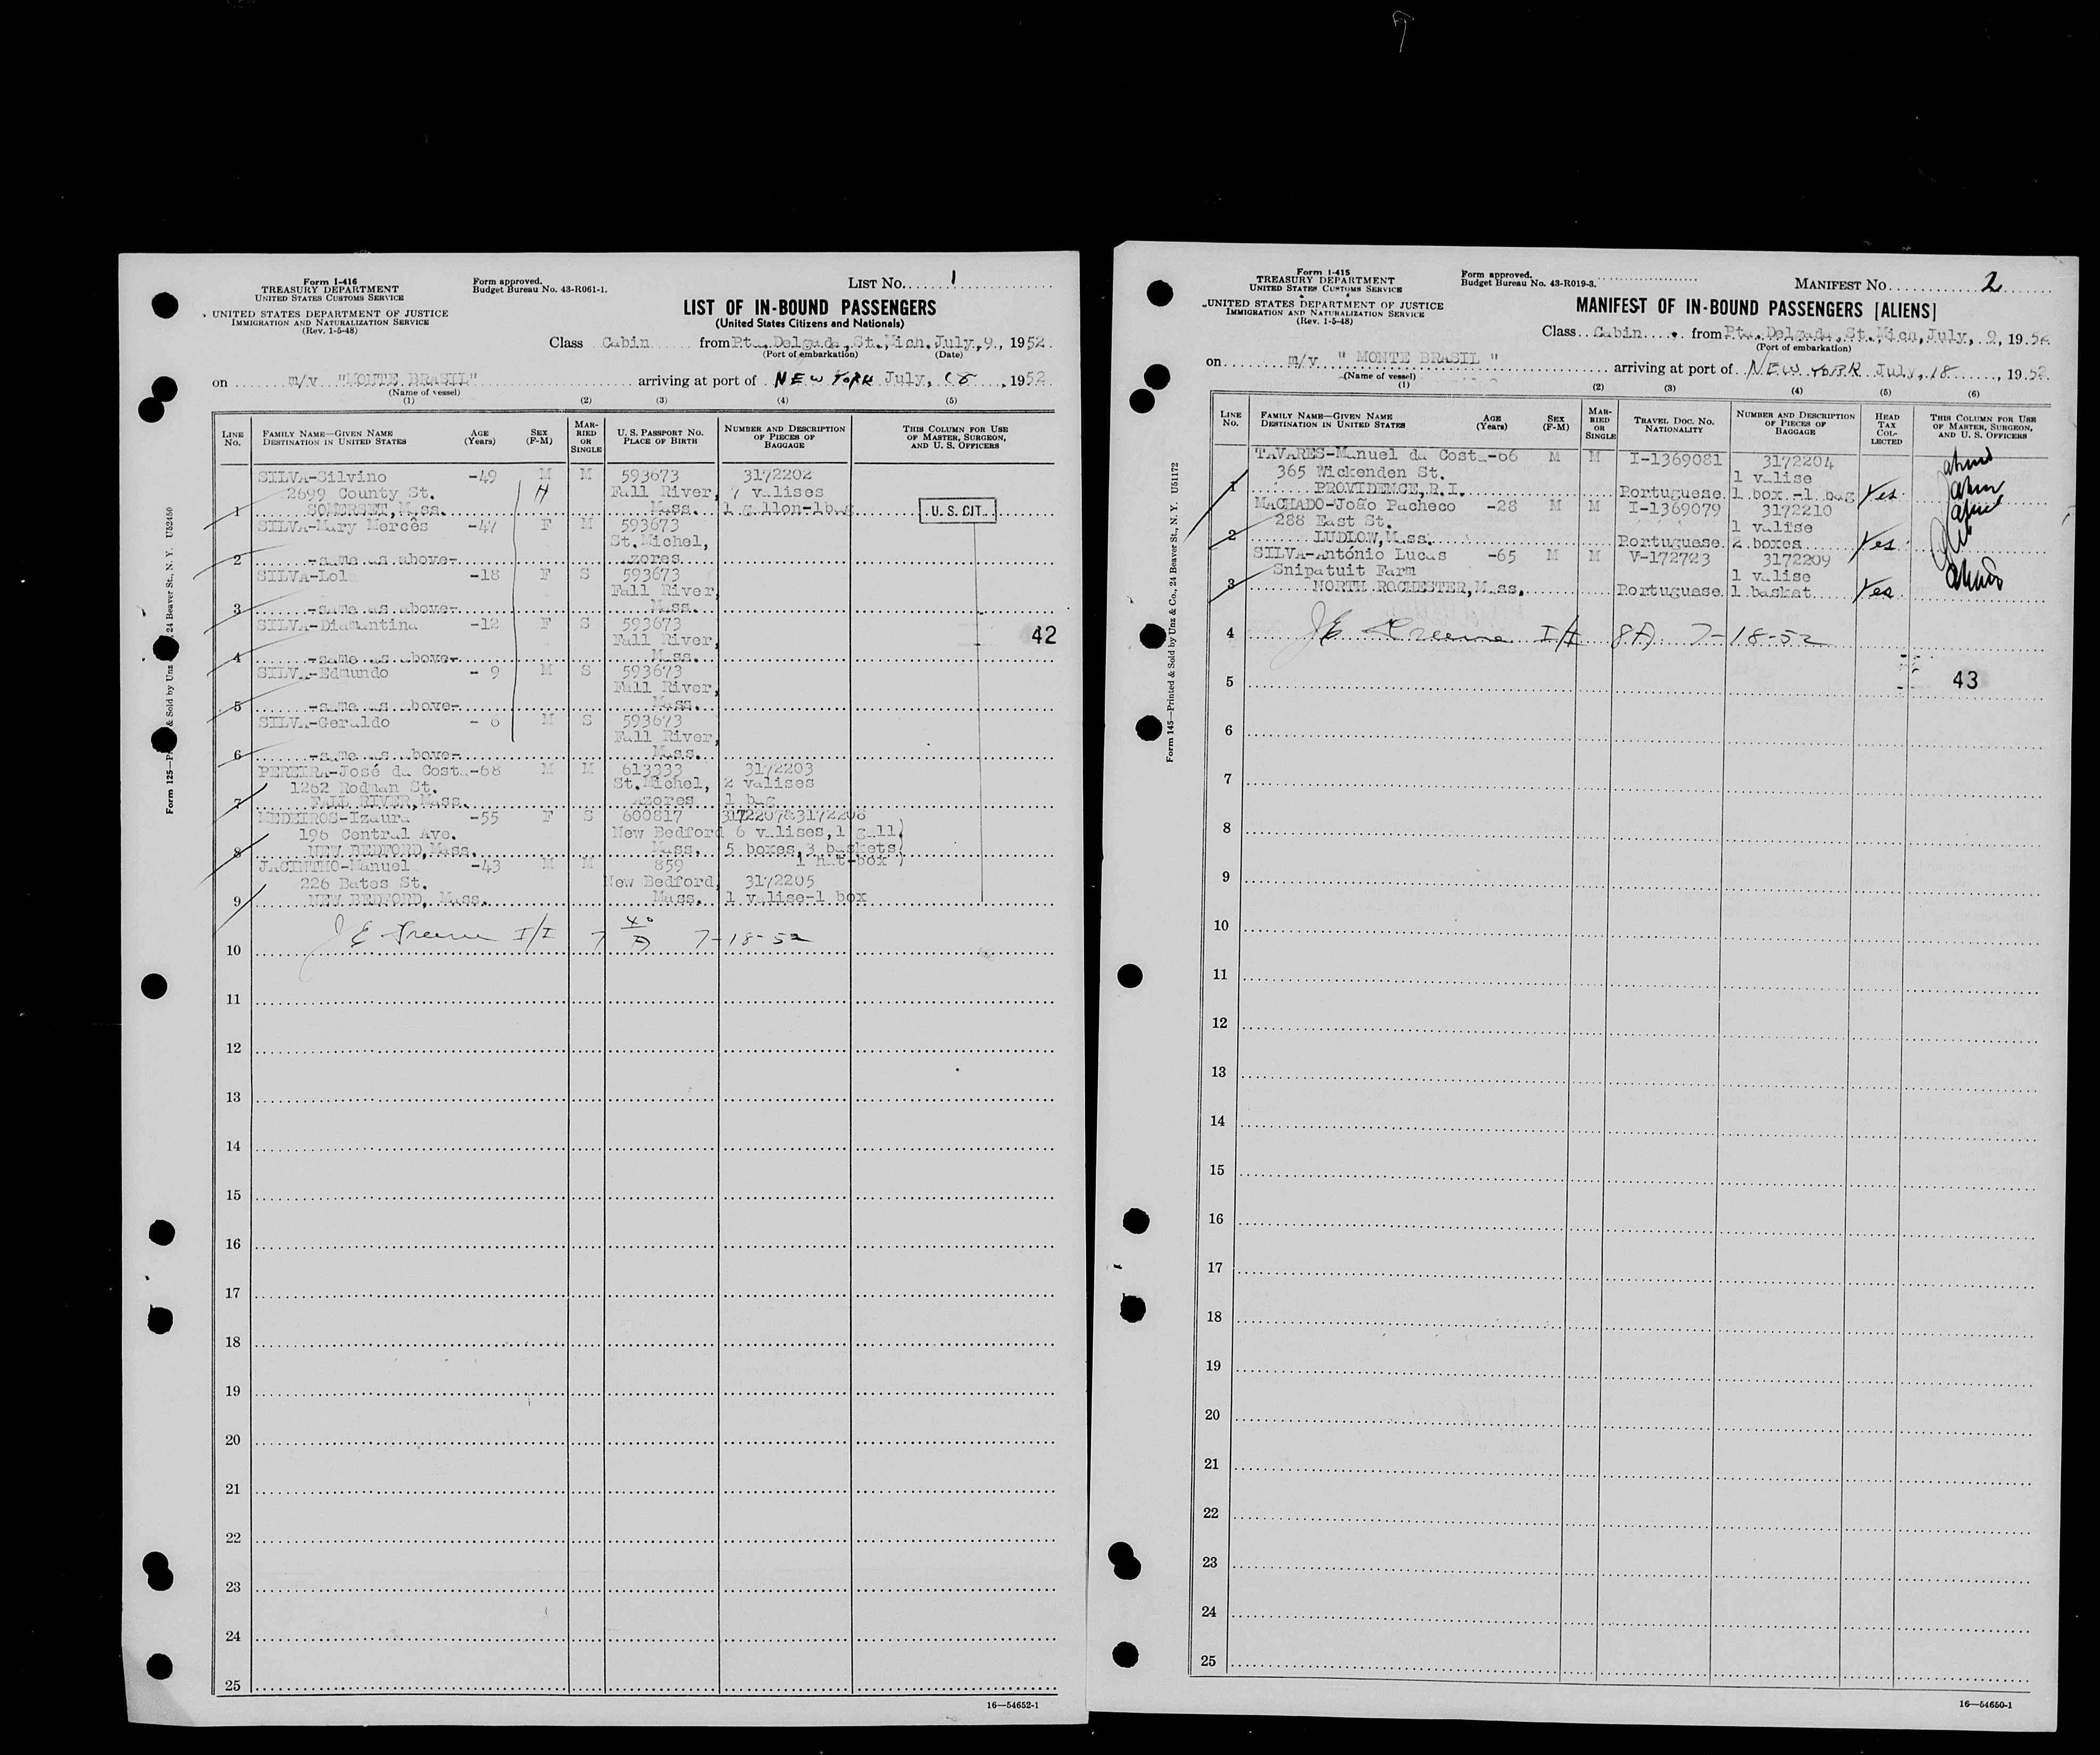 Form I-416
TREASURY DEPARTMENT
UNITED STATES CUSTOMS SERVICE
UNITED STATES DEPARTMENT OF JUSTICE
IMMIGRATION AND NATURALIZATION SERVICE
(Rev. 1-5-48)
Form approved.
Budget Bureau No. 43-R061-1.
LIST NO. 1
LIST OF IN-BOUND PASSENGERS
(United States Citizens and Nationals)
Class Cabin from Pta. Delgada, St. Mich. July, 9, 1952
(Port of embarkation) (Date)
on m/v "MONTE BRASIL" arriving at port of NEW YORK July, 18, 1952
(Name of vessel)
(1) (2) (3) (4) (5)
LINE NO.
FAMILY NAME—GIVEN NAME
DESTINATION IN UNITED STATES
AGE (Years)
SEX (F-M)
MARRIED OR SINGLE
U. S. PASSPORT NO.
PLACE OF BIRTH
NUMBER AND DESCRIPTION OF PIECES OF BAGGAGE
THIS COLUMN FOR USE OF MASTER, SURGEON, AND U. S. OFFICERS
SILVA-Silvino -49 M M 593673 3172202
2699 County St. H Fall River, 7 valises
1 SOMERSET, Mass. Mass. 1 gallon-1bag U. S. CIT.
SILVA-Mary Mercês -47 F M 593673
St. Michel,
2 -same as above- Azores
SILVA-Lola -18 F S 593673
Fall River,
3 -same as above- Mass.
SILVA-Diamantina -12 F S 593673
Fall River, 42
4 -same as above- Mass.
SILVA-Edmundo - 9 M S 593673
Fall River,
5 -same as above- Mass.
SILVA-Geraldo M S 593673
Fall River,
6 -same as above- Mass.
PEREIRA-José da Costa-68 M M 613333 3172203
1262 Rodman St. St. Michel, 2 valises
7 FALL RIVER, Mass. Azores 1 bag
MEDEIROS-Izaura -55 F S 600817 3172207&3172208
196 Central Ave. New Bedford 6 valises, 1 gall)
8 NEW BEDFORD, Mass. Mass. 5 boxes, 3 baskets(
JACINTHO-Manuel -43 M M 859 1 hat-box )
226 Bates St. New Bedford, 3172205
9 NEW BEDFORD, Mass. Mass. 1 valise-1 box
I/I 7-18-52
10
11
12
13
14
15
16
17
18
19
20
21
22
23
24
25
16—54652-1
24 Beaver St., N. Y. U52450
Form I-415
TREASURY DEPARTMENT
UNITED STATES CUSTOMS SERVICE
UNITED STATES DEPARTMENT OF JUSTICE
IMMIGRATION AND NATURALIZATION SERVICE
(Rev. 1-5-48)
Form approved.
Budget Bureau No. 43-R019-3.
MANIFEST NO. 2
MANIFEST OF IN-BOUND PASSENGERS [ALIENS]
Class Cabin from Pta. Delgada, St. Mich, July, 9, 1952
(Port of embarkation)
on m/v " MONTE BRASIL " arriving at port of NEW YORK July, 18, 1952
(Name of vessel)
(1) (2) (3) (4) (5) (6)
LINE NO.
FAMILY NAME—GIVEN NAME
DESTINATION IN UNITED STATES
AGE (Years)
SEX (F-M)
MARRIED OR SINGLE
TRAVEL DOC. NO.
NATIONALITY
NUMBER AND DESCRIPTION OF PIECES OF BAGGAGE
HEAD TAX COLLECTED
THIS COLUMN FOR USE OF MASTER, SURGEON, AND U. S. OFFICERS
TAVARES-Manuel da Costa-66 M M I-1369081 3172204
365 Wickenden St. 1 valise
1 PROVIDENCE, R.I. Portuguese 1 box -1 bag Yes
MACHADO-João Pacheco -28 M M I-1369079 3172210
288 East St. 1 valise
2 LUDLOW, Mass. Portuguese 2 boxes Yes
SILVA-António Lucas -65 M M V-172723 3172209
Snipatuit Farm 1 valise
3 NORTH ROCHESTER, Mass. Portuguese 1 basket Yes
4 I/I 7-18-52
43
5
6
7
8
9
10
11
12
13
14
15
16
17
18
19
20
21
22
23
24
25
16—54650-1
Form 145—Printed & Sold by Unz & Co., 24 Beaver St., N. Y. U51172